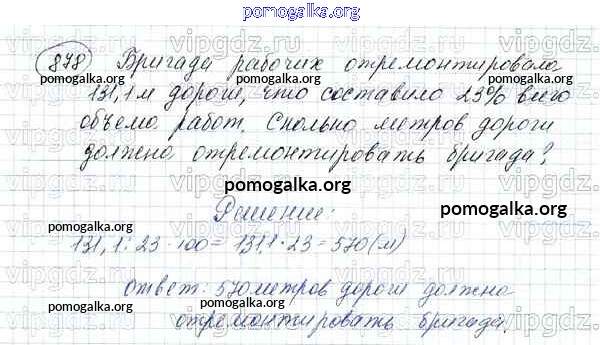 pomogalka.org
878 Бригада рабочих отремонтировала
131,1 м дороги, что составило 23% всего
объема работ. Сколько метров дороги
должна отремонтировать бригада?
pomogalka.org
pomogalka.org
pomogalka.org
Решение:
131,1 : 23 · 100 = 131,1 · 23 = 570 (м)
pomogalka.org
pomogalka.org
pomogalka.org
Ответ: 570 метров дороги должна
отремонтировать бригада.
pomogalka.org
pomogalka.org
pomogalka.org